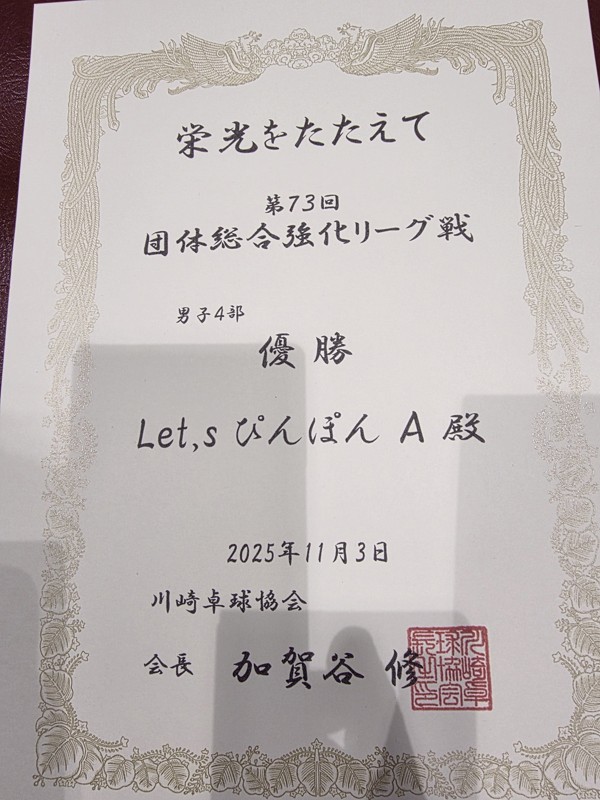 栄光をたたえて
第73回
団体総合強化リーグ戦
男子4部
優勝
Let,s ぴんぽん A 殿
2025年11月3日
川崎卓球協会
会長 加賀谷 修
川崎卓球協会長之印